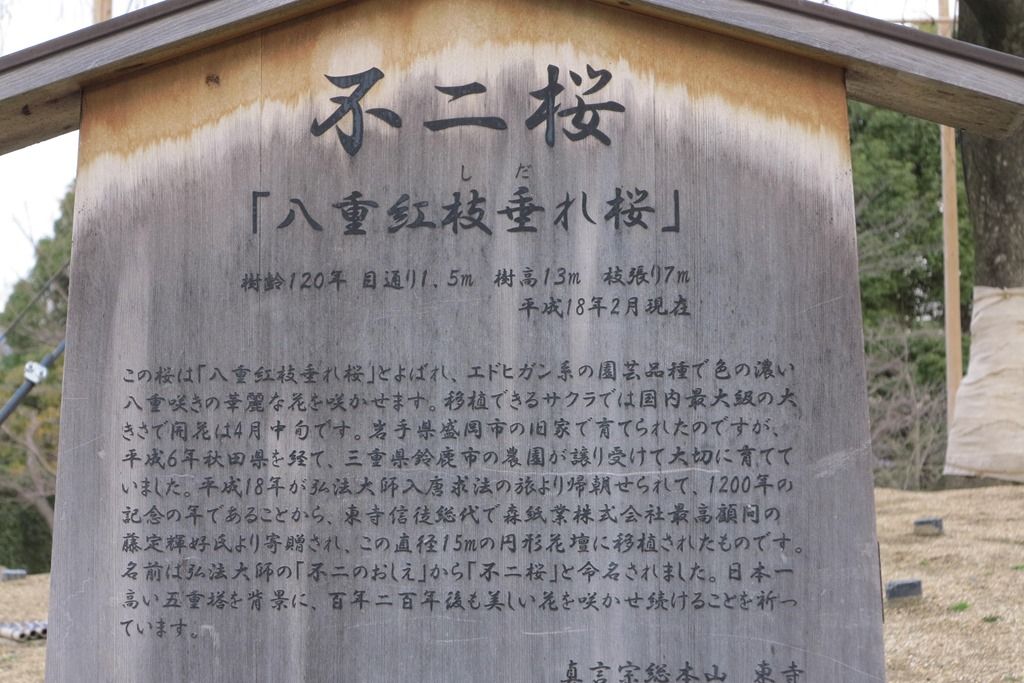 不二桜
しだ
「八重紅枝垂れ桜」
樹齢120年 目通り1.5m 樹高13m 枝張り7m
平成18年2月現在
この桜は「八重紅枝垂れ桜」とよばれ、エドヒガン系の園芸品種で色の濃い
八重咲きの華麗な花を咲かせます。移植できるサクラでは国内最大級の大
きさで開花は4月中旬です。岩手県盛岡市の旧家で育てられたのですが、
平成6年秋田県を経て、三重県鈴鹿市の農園が譲り受けて大切に育てて
いました。平成18年が弘法大師入唐求法の旅より帰朝せられて、1200年の
記念の年であることから、東寺信徒総代で森紙業株式会社最高顧問の
藤定輝好氏より寄贈され、この直径15mの円形花壇に移植されたものです。
名前は弘法大師の「不二のおしえ」から「不二桜」と命名されました。日本一
高い五重塔を背景に、百年二百年後も美しい花を咲かせ続けることを祈っ
ています。
真言宗総本山 東寺